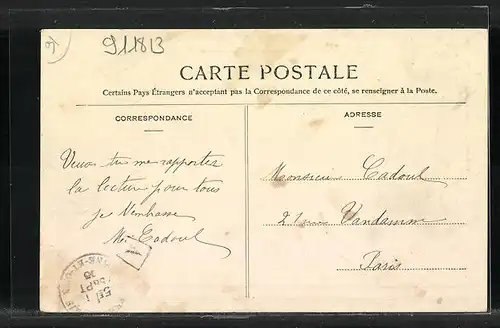 911813
CARTE POSTALE
Certains Pays Étrangers n'acceptent pas la Correspondance de ce côté, se renseigner à la Poste.
CORRESPONDANCE
tu me rapporter
la lecture pour tous
je t'embrasse
Cadoul
ADRESSE
Monsieur Cadoul
21 rue Vandamme
Paris